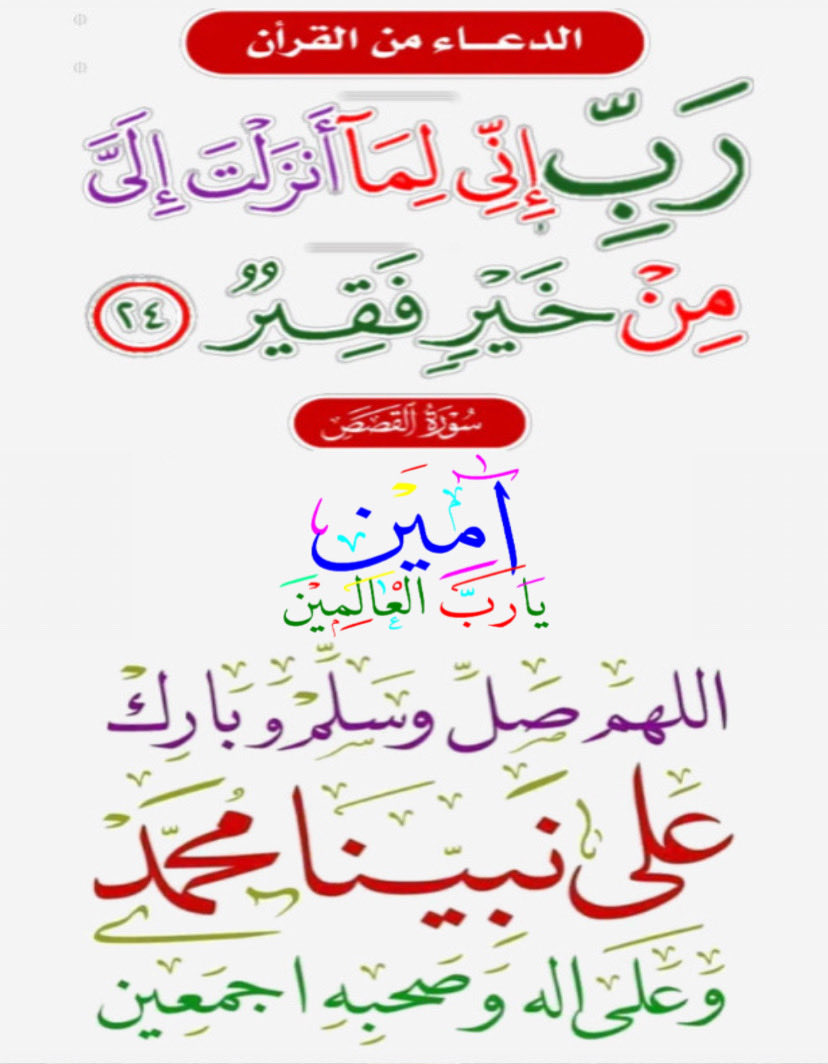 الدعـــاء من القرأن
رَبِّ إِنِّي لِمَآ أَنزَلْتَ إِلَىَّ
مِنْ خَيْرٍ فَقِيرٌ ٢٤
سُوْرَةُ الْقَصَصَ
آمِيْن
يَا رَبَّ الْعَالَمِيْنَ
اللهم صَلِّ وَسَلِّمْ وَبَارِكْ
عَلَى نَبِيّنَا مُحَمَّدْ
وَعَلَى اله وَصَحْبِهِ اجمَعِين